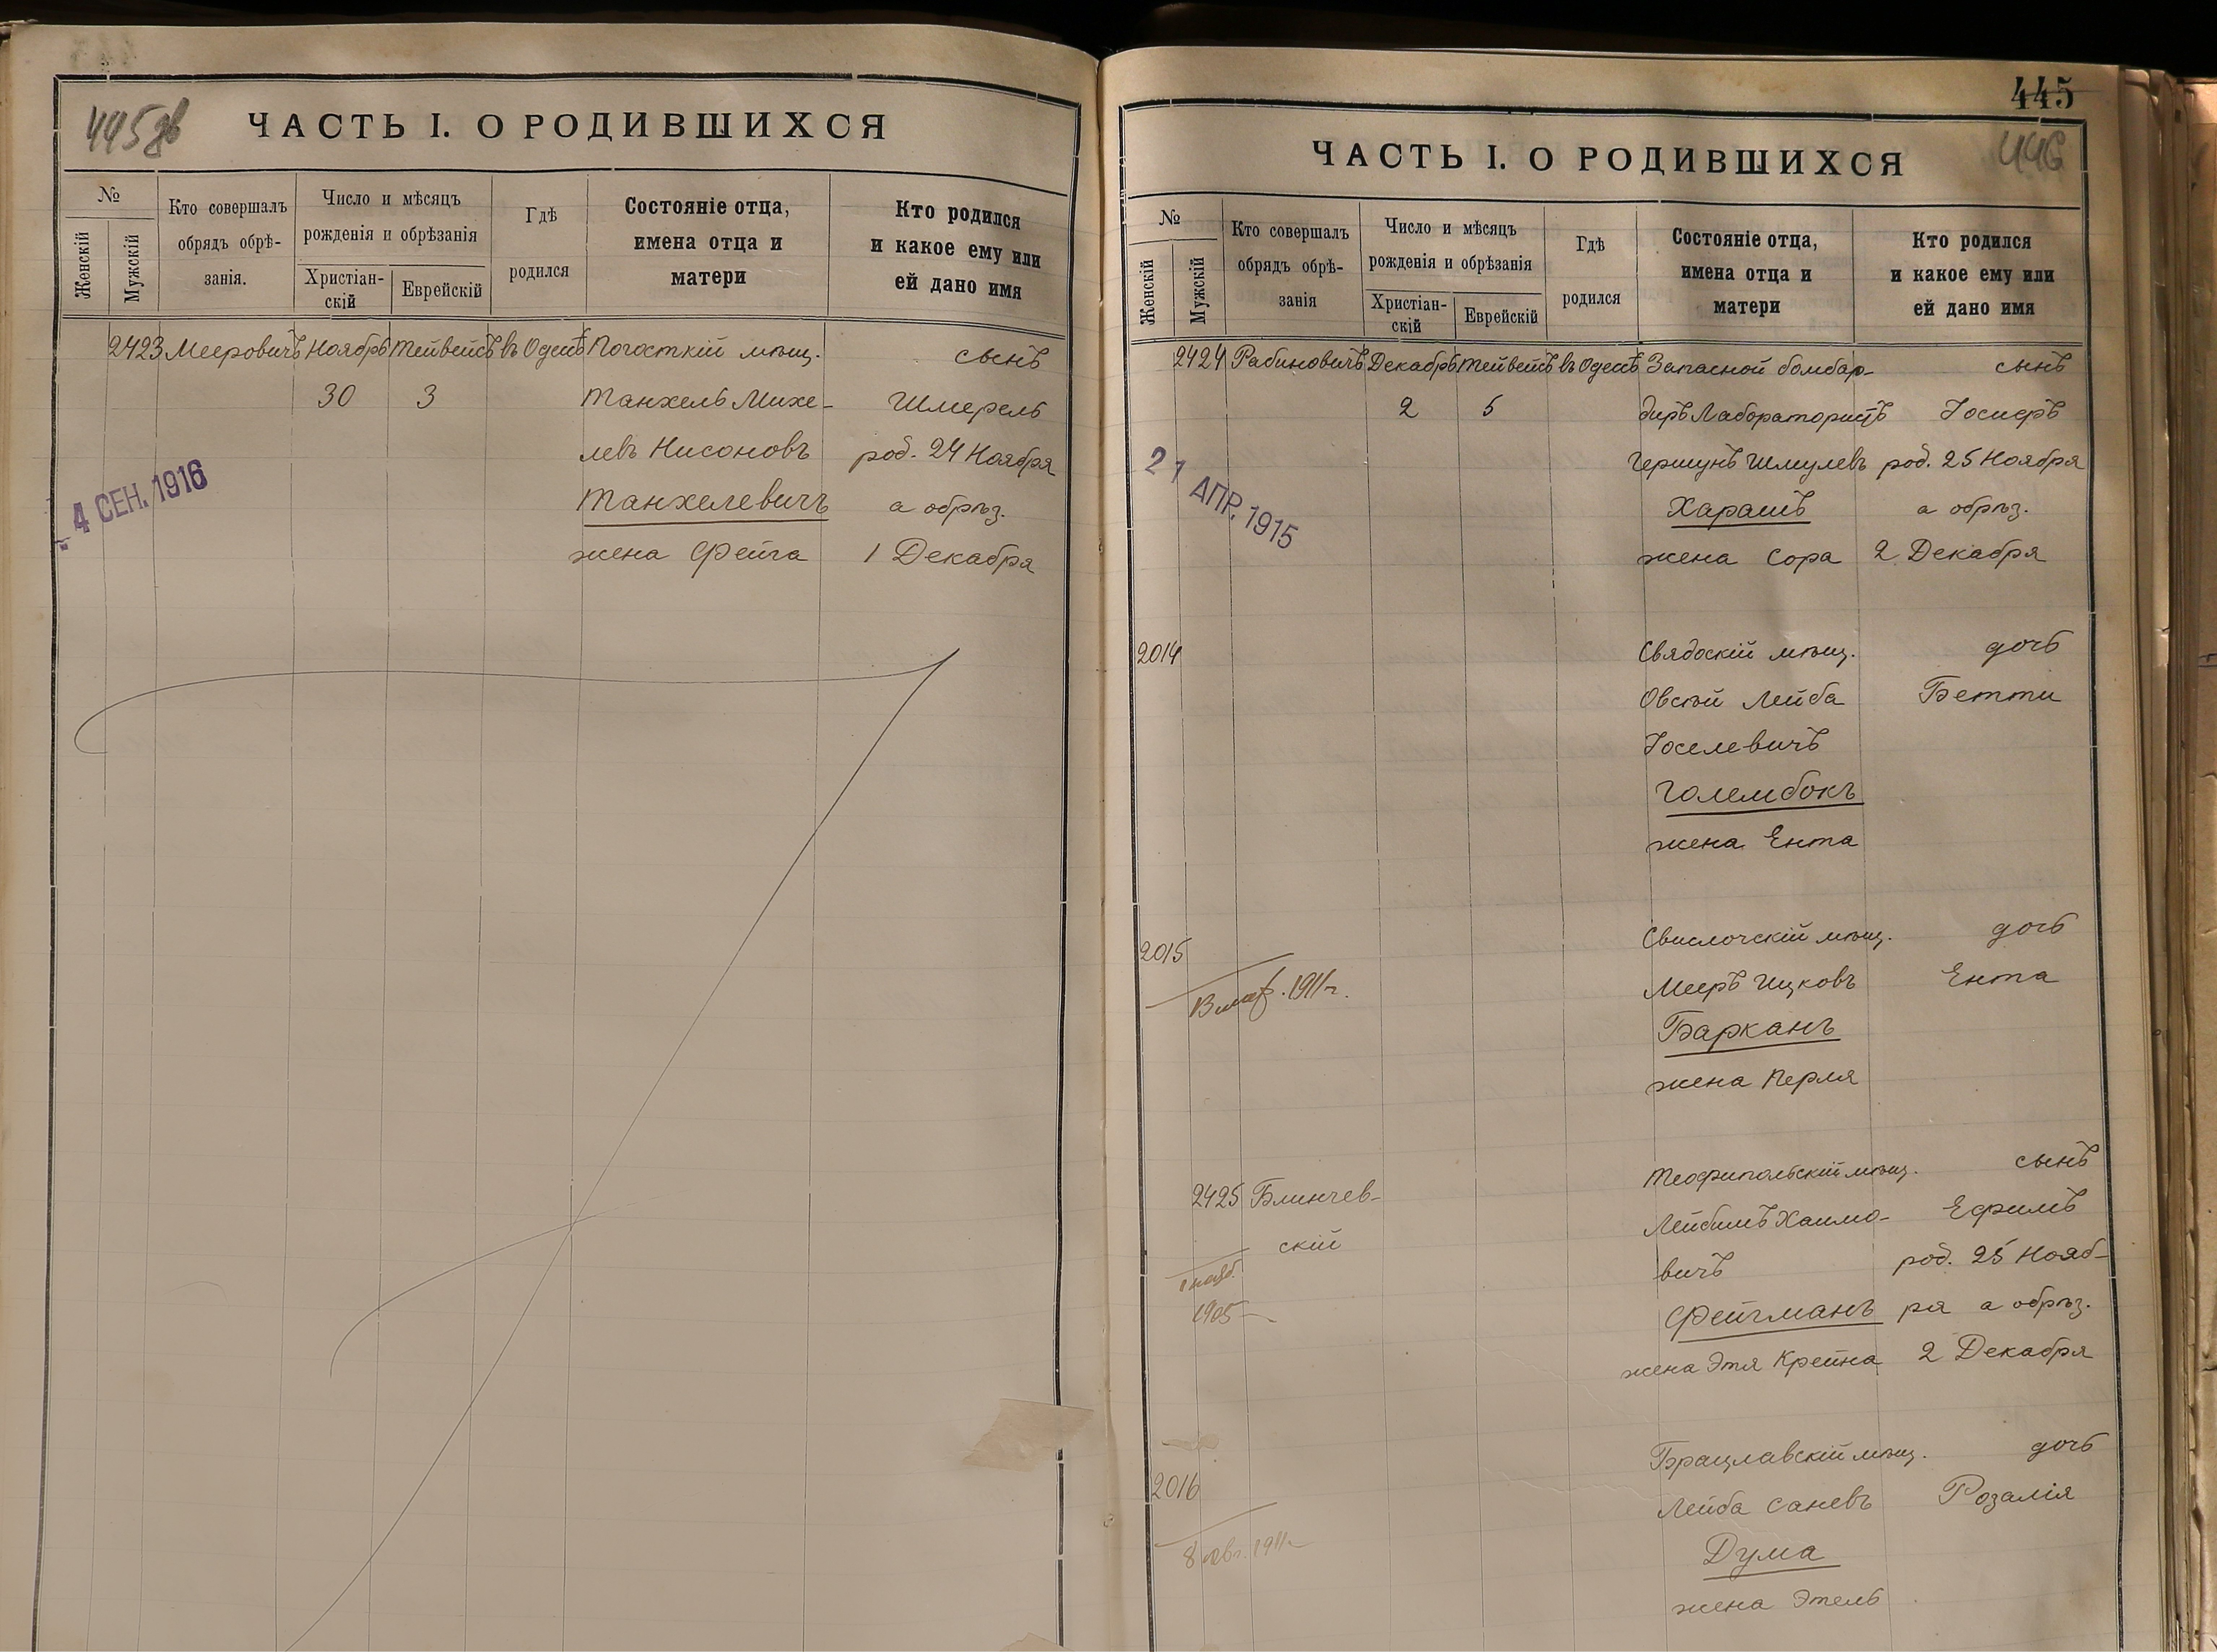 445 об
ЧАСТЬ I. О РОДИВШИХСЯ
№
Женскій
Мужскій
Кто совершалъ
обрядъ обрѣ-
занія.
Число и мѣсяцъ
рожденія и обрѣзанія
Христіан-
скій
Еврейскій
Гдѣ
родился
Состояніе отца,
имена отца и
матери
Кто родился
и какое ему или
ей дано имя
2423 Мееровичъ Ноябрь Тейвейсъ въ Одессѣ Погосткій мѣщ. сынъ
30 3 Танхель Михе- Шмерель
левъ Нисоновъ род. 24 Ноября
Танхелевичъ а обрѣз.
жена Фейга 1 Декабря
4 СЕН. 1916
445
446
ЧАСТЬ I. О РОДИВШИХСЯ
№
Женскій
Мужскій
Кто совершалъ
обрядъ обрѣ-
занія
Число и мѣсяцъ
рожденія и обрѣзанія
Христіан-
скій
Еврейскій
Гдѣ
родился
Состояніе отца,
имена отца и
матери
Кто родился
и какое ему или
ей дано имя
2424 Рабиновичъ Декабрь Тейвейсъ въ Одессѣ Запасной бомбар- сынъ
2 5 диръ Лаборатористъ Іосифъ
Гершунъ Шмулевъ род. 25 Ноября
Харашъ а обрѣз.
жена Сора 2 Декабря
21 АПР. 1915
2014 Свядоскій мѣщ. дочь
Овсѣй Лейба Бетти
Іоселевичъ
Голембокъ
жена Ента
2015 Свислочскій мѣщ. дочь
1911 г. Мееръ Ицковъ Ента
Барканъ
жена Перля
2425 Блинчев- Теофипольскій мѣщ. сынъ
скій Лейбишъ Хаимо- Ефимъ
вичъ род. 25 Нояб-
1905 Фейгманъ ря а обрѣз.
жена Этя Крейна 2 Декабря
2016 Брацлавскій мѣщ. дочь
Лейба Саневъ Розалія
8 1911 Дума
жена Этель